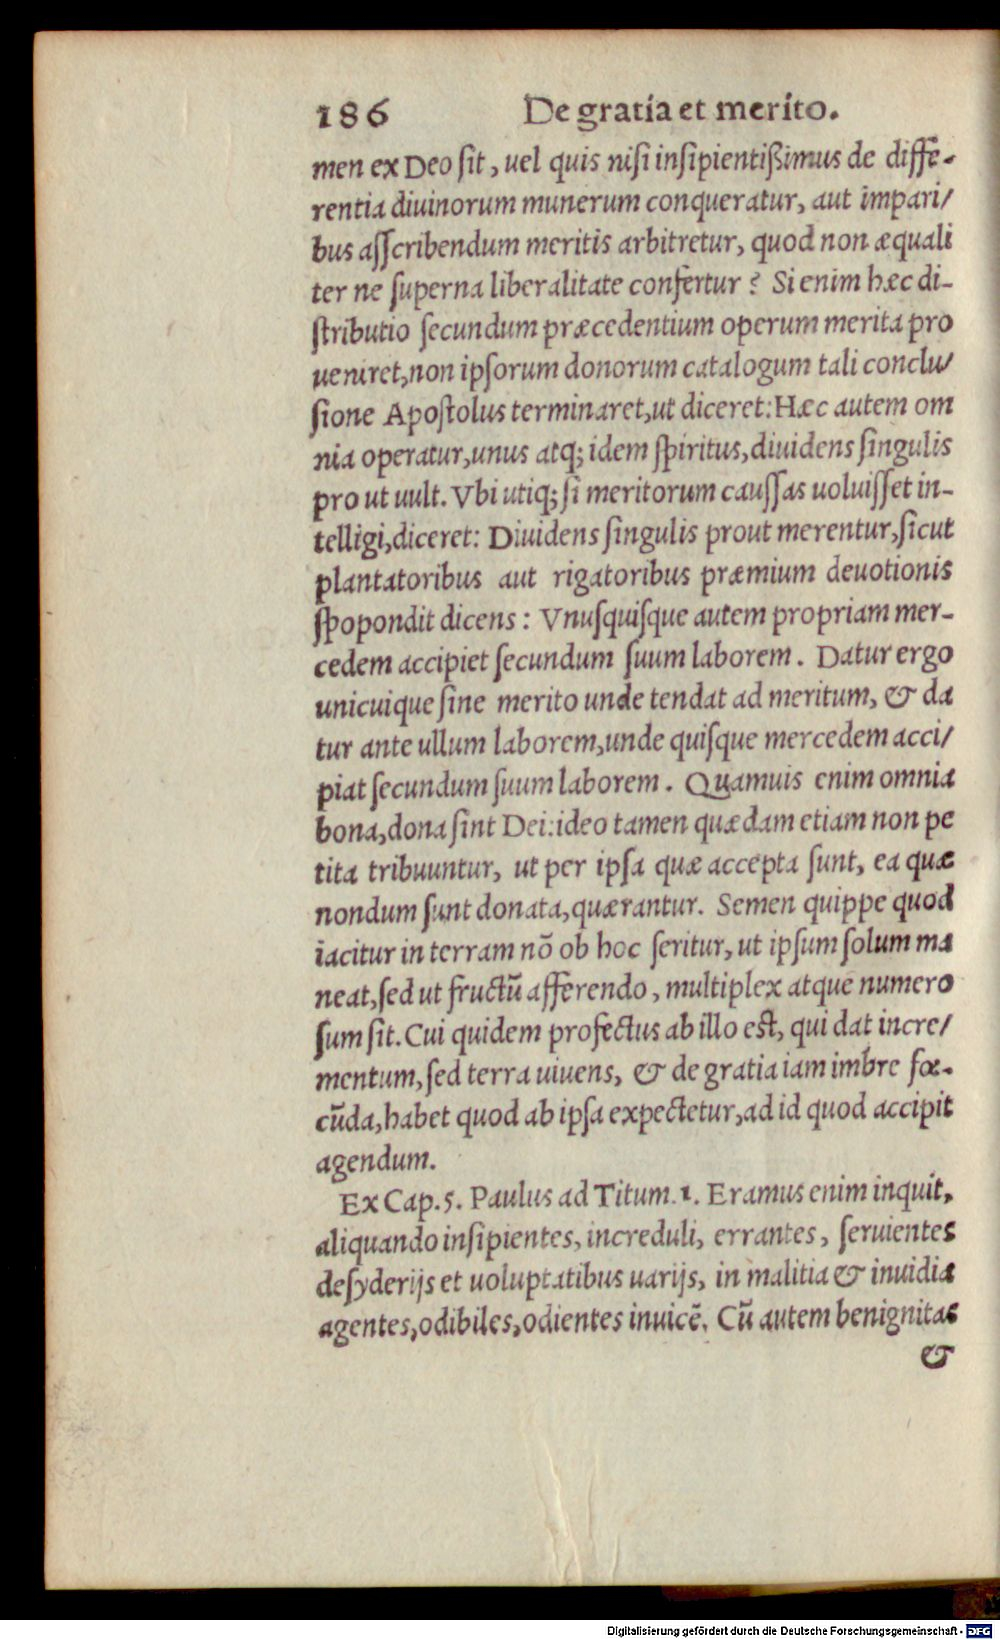 186 De gratia et merito.
men ex Deo ſit, uel quis niſi inſipientißimus de diffe-
rentia diuinorum munerum conqueratur, aut impari/
bus aſſcribendum meritis arbitretur, quod non æquali
ter ne ſuperna liberalitate confertur? Si enim hæc di-
ſtributio ſecundum præcedentium operum merita pro
ueniret, non ipſorum donorum catalogum tali conclu/
ſione Apoſtolus terminaret, ut diceret: Hæc autem om
nia operatur, unus atq; idem ſpiritus, diuidens ſingulis
pro ut uult. Vbi utiq; ſi meritorum cauſſas uoluiſſet in-
telligi, diceret: Diuidens ſingulis prout merentur, ſicut
plantatoribus aut rigatoribus præmium deuotionis
ſpopondit dicens: Vnuſquiſque autem propriam mer-
cedem accipiet ſecundum ſuum laborem. Datur ergo
unicuique ſine merito unde tendat ad meritum, & da
tur ante ullum laborem, unde quiſque mercedem acci/
piat ſecundum ſuum laborem. Quamuis enim omnia
bona, dona ſint Dei: ideo tamen quædam etiam non pe
tita tribuuntur, ut per ipſa quæ accepta ſunt, ea quæ
nondum ſunt donata, quærantur. Semen quippe quod
iacitur in terram nō ob hoc ſeritur, ut ipſum ſolum ma
neat, ſed ut fructū afferendo, multiplex atque numero
ſum ſit. Cui quidem profectus ab illo eſt, qui dat incre/
mentum, ſed terra uiuens, & de gratia iam imbre fœ-
cūda, habet quod ab ipſa expectetur, ad id quod accipit
agendum.
Ex Cap. 5. Paulus ad Titum. 1. Eramus enim inquit,
aliquando inſipientes, increduli, errantes, ſeruientes
deſyderijs et uoluptatibus uarijs, in malitia & inuidia
agentes, odibiles, odientes inuicē. Cū autem benignitas
&
Digitalisierung gefördert durch die Deutsche Forschungsgemeinschaft - DFG